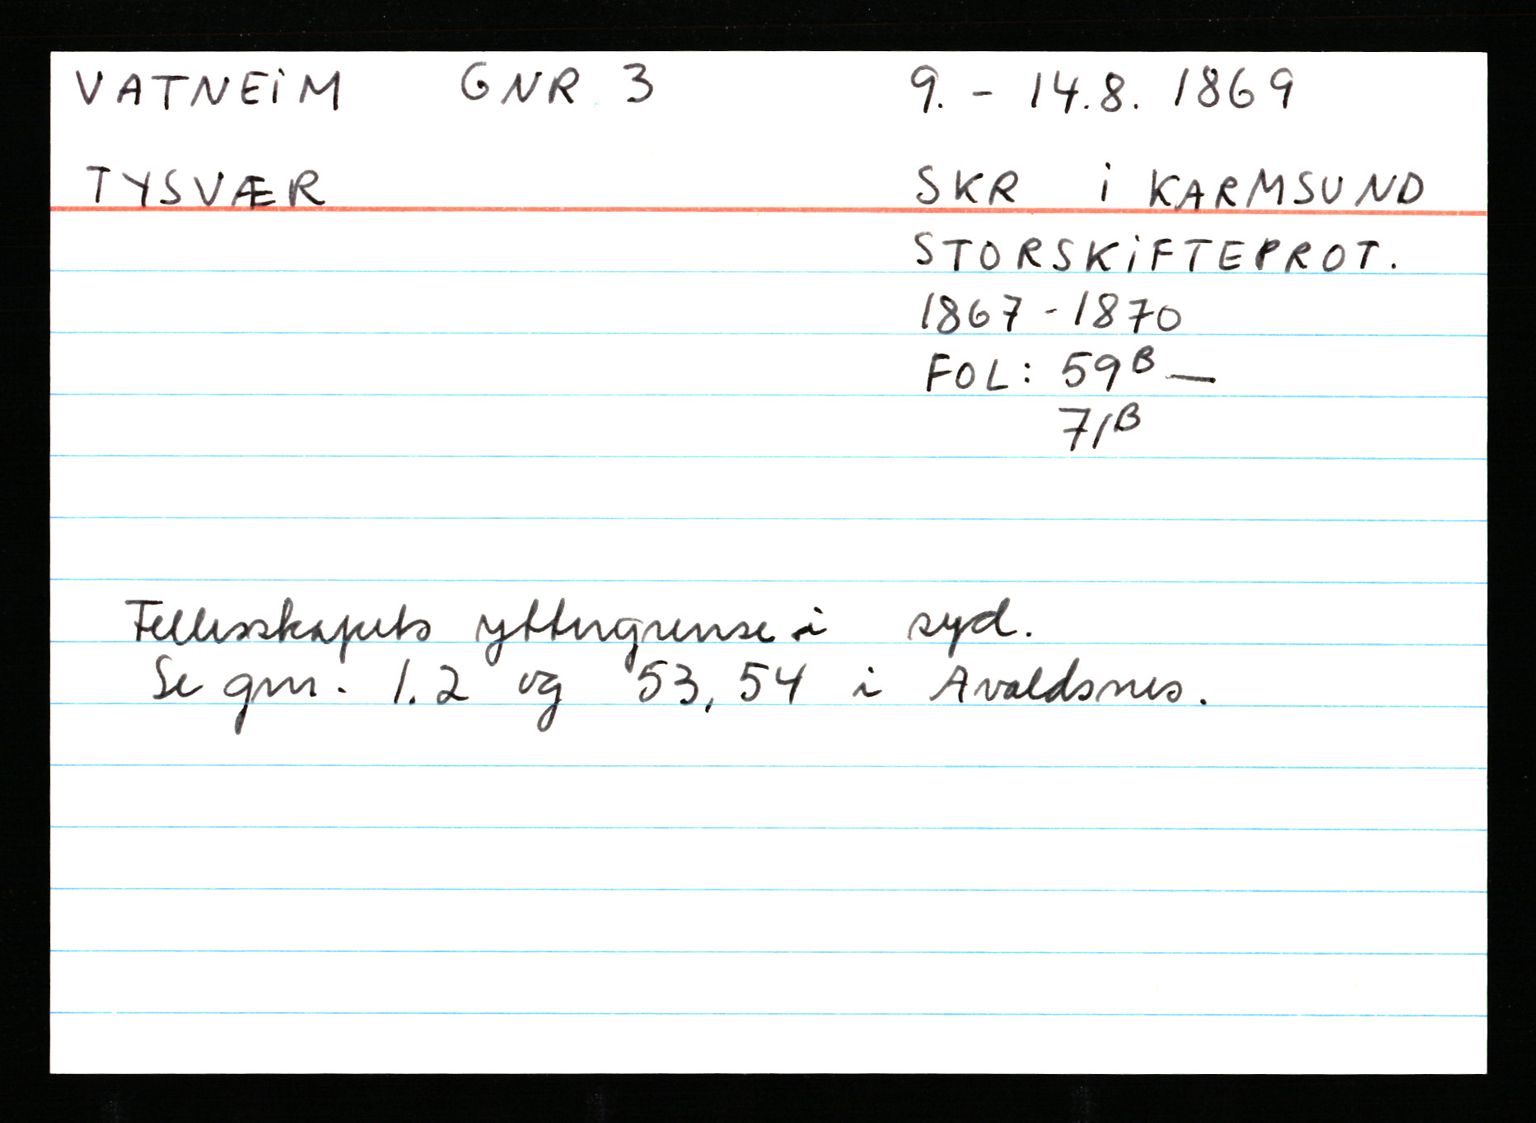 VATNEIM GNR 3 9. - 14.8. 1869
TYSVÆR SKR i KARMSUND
STORSKIFTEPROT.
1867 - 1870
FOL: 59B —
71B
Fellesskapets yttergrense i syd.
Se gnr. 1.2 og 53, 54 i Avaldsnes.